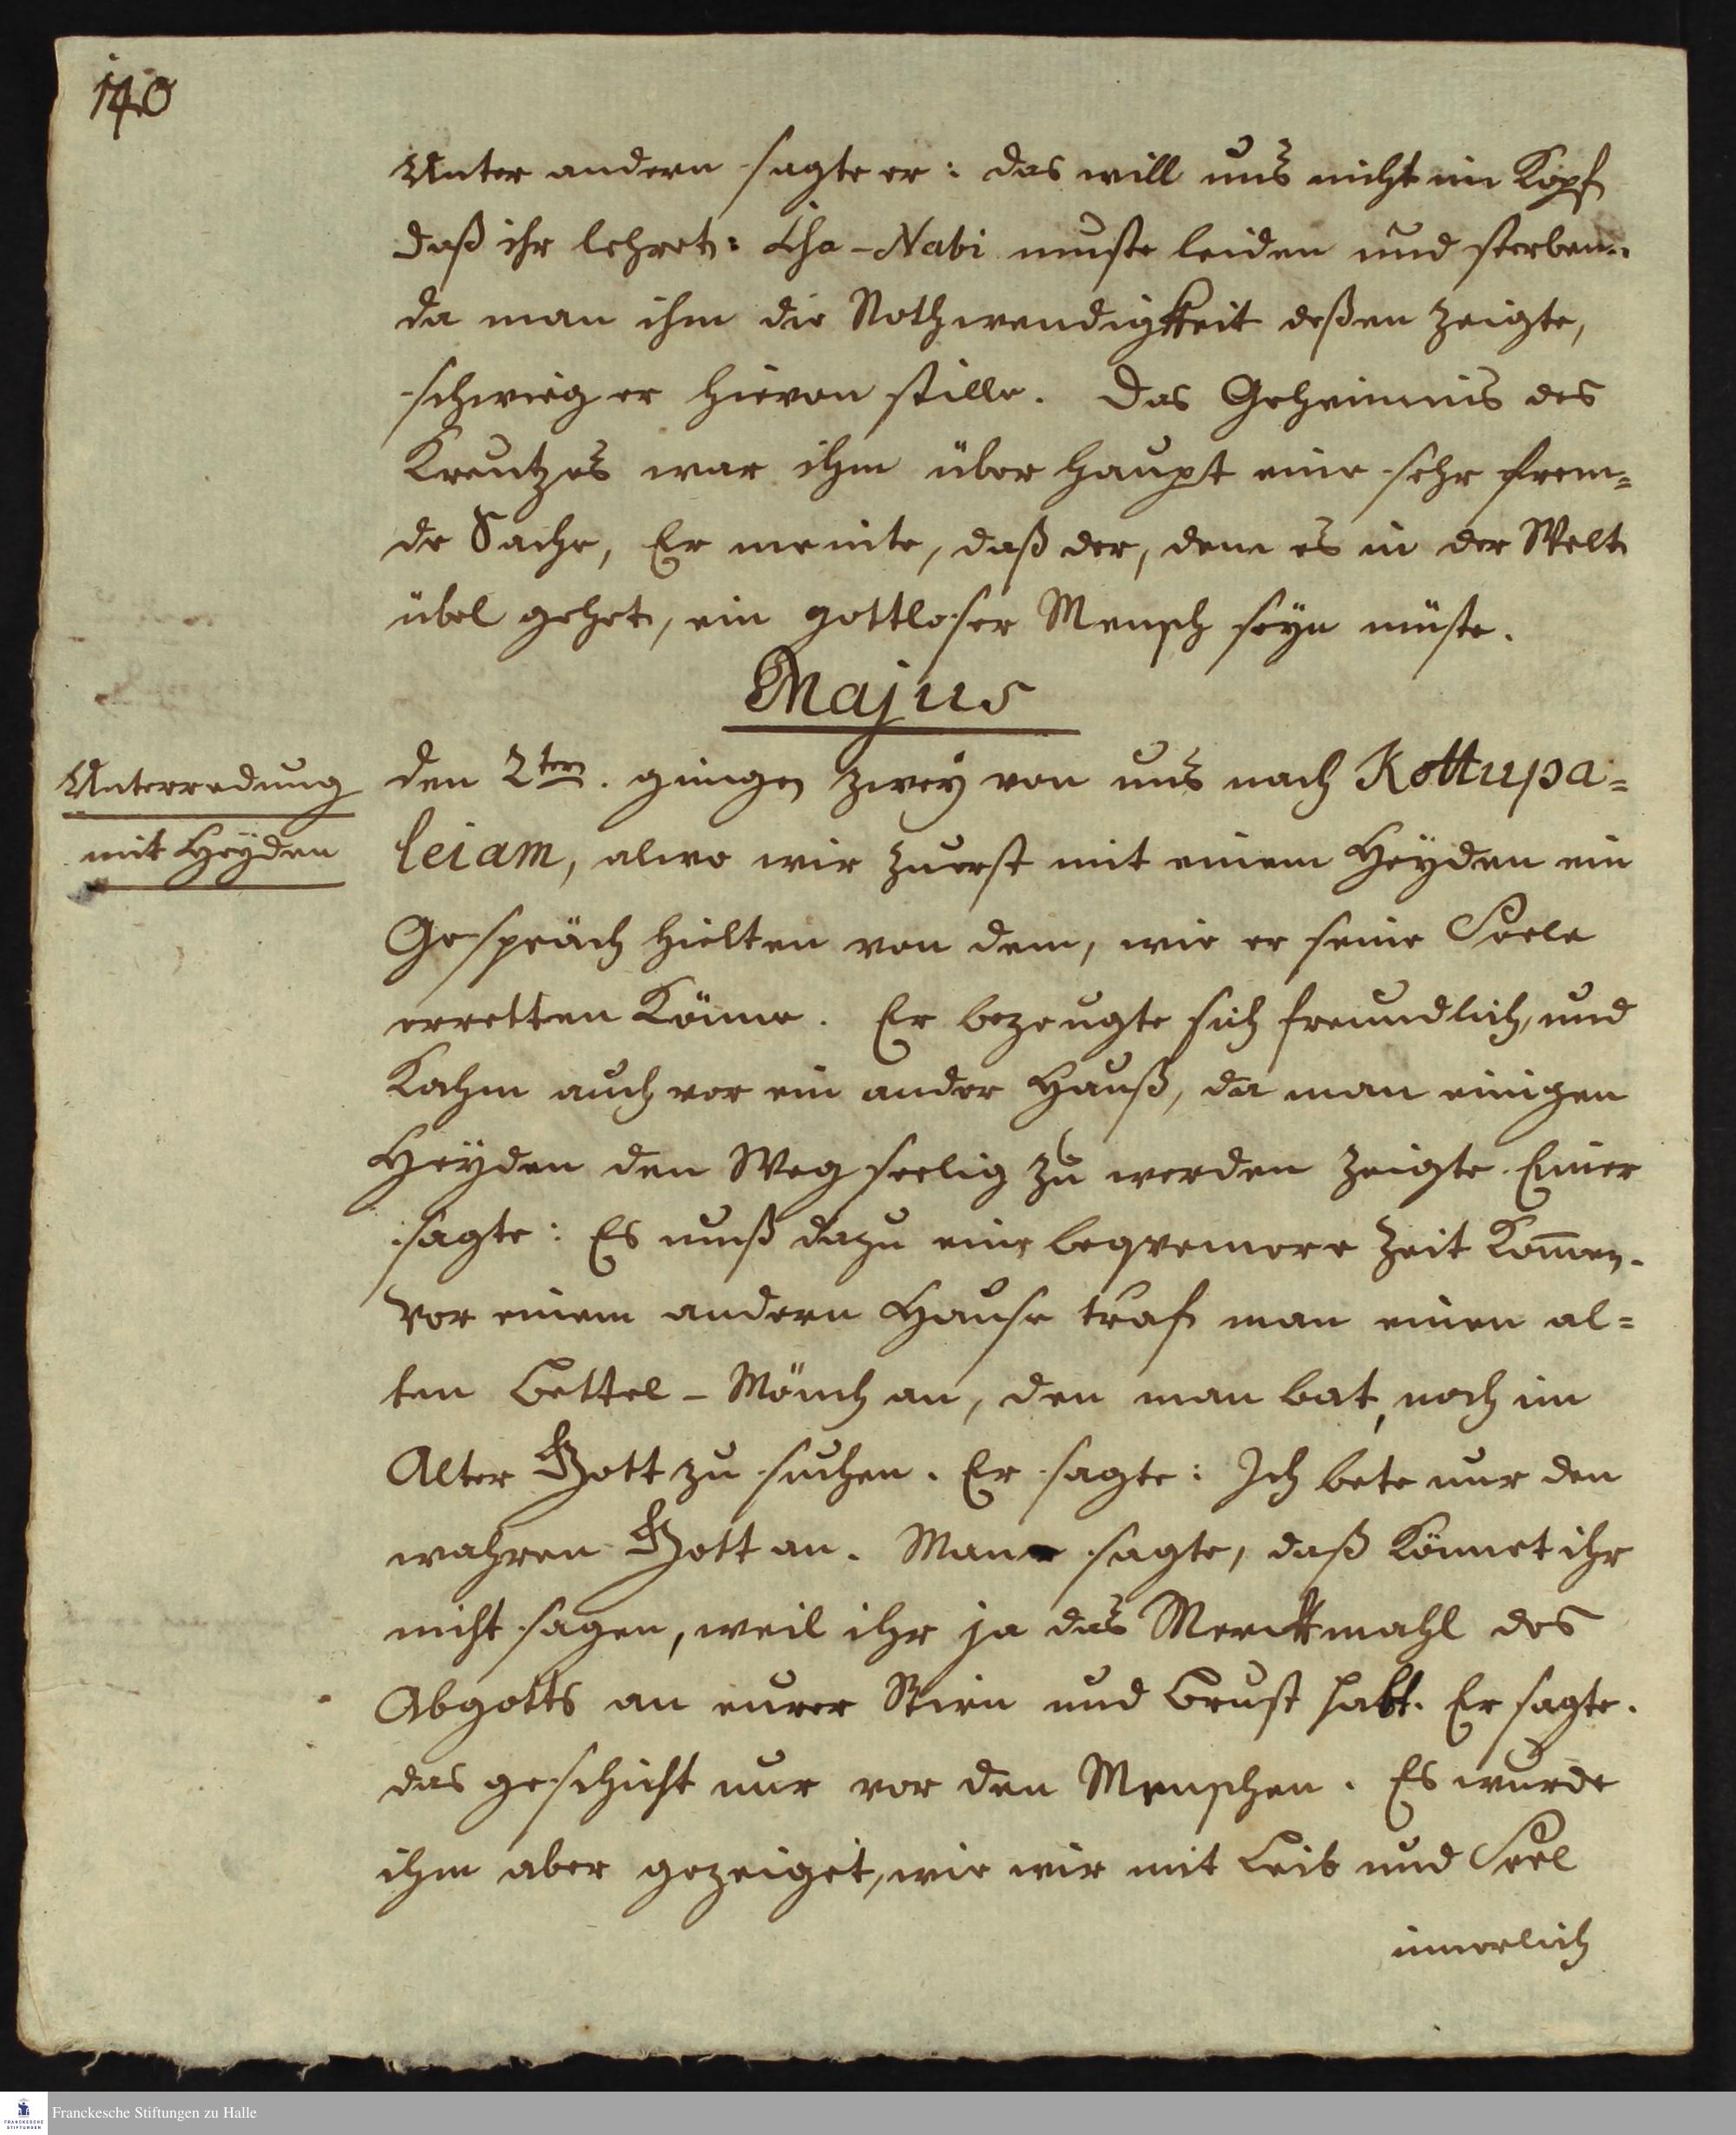 140
Unter andern sagte er: das will uns nicht im Kopf
daß ihr lehret: Isa-Nabi muste leiden und sterben.
da man ihm die Nothwendigkeit deßen zeigte,
schwieg er hievon stille. Das Geheimnis des
Kreutzes war ihm über haupt eine sehr frem=
de Sache, Er meinte, daß der, dem es in der Welt
übel gehet, ein gottloser Mensch seyn müste.
Majus
Unterredung
mit Heyden
den 2ten. gingen zwey von uns nach Kottupa=
leiam, alwo wir zuerst mit einem Heyden ein
Gespräch hielten von dem, wie er seine Seele
erretten könne. Er bezeugte sich freundlich, und
kahm auch vor ein ander Hauß, da man einigen
Heyden den Weg seelig zu werden zeigte. Einer
sagte: Es muß dazu eine beqvemere Zeit kom̅en.
Vor einem andern Hause traf man einen al=
ten Bettel-Mönch an, den man bat, noch im
Alter Gott zu suchen. Er sagte: Ich bete nur den
wahren Gott an. Man sagte, daß könnet ihr
nicht sagen, weil ihr ja das Merckmahl des
Abgotts an eurer Stirn und Brust habt. Er sagte.
das geschicht nur vor den Menschen. Es wurde
ihm aber gezeiget, wie wir mit Leib und Seel
innerlich
Franckesche Stiftungen zu Halle